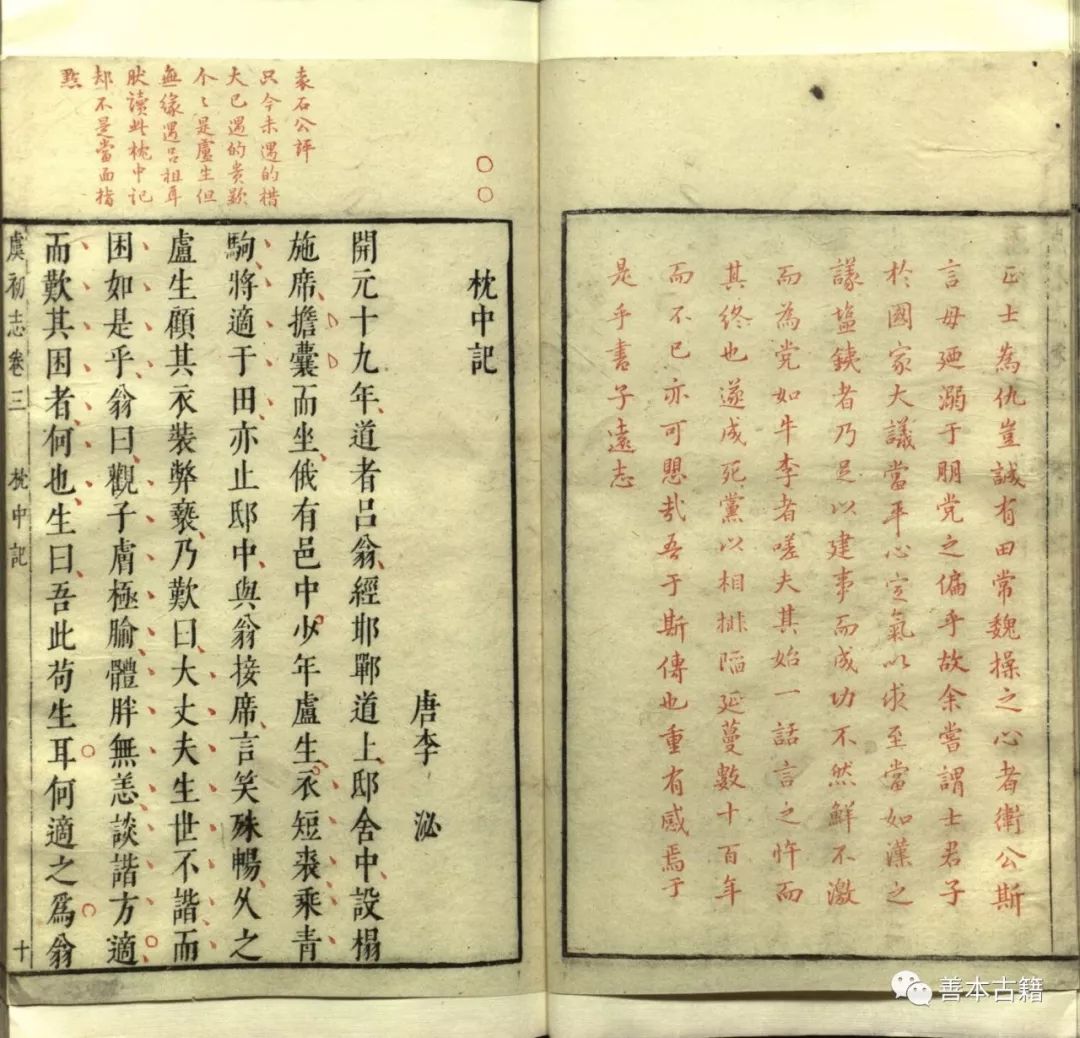 正士為仇豈誠有田常魏操之心者衛公斯
言毋廼溺于朋党之偏乎故余嘗謂士君子
於國家大議當平心定氣以求至當如漢之
議塩鉄者乃足以建事而成功不然鮮不激
而為党如牛李者嗟夫其始一話言之忤而
其終也遂成死黨以相排陷延蔓數十百年
而不已亦可思哉吾于斯傳也重有感焉于
是乎書子遠志
袁石公評
只今未遇的措
大已遇的貴歟
个〻是盧生但
無緣遇吕祖耳
肰讀此枕中記
却不是當面指
㸃
枕中記
唐李泌
開元十九年道者呂翁經邯鄲道上邸舍中設榻
施席擔囊而坐俄有邑中少年盧生衣短裘乘青
駒將適于田亦止邸中與翁接席言笑殊暢久之
盧生顧其衣裝弊褻乃歎曰大丈夫生世不諧而
困如是乎翁曰觀子膚極腧體胖無恙談諧方適
而歎其困者何也生曰吾此苟生耳何適之爲翁
虞初志卷三 枕中記 十
善本古籍